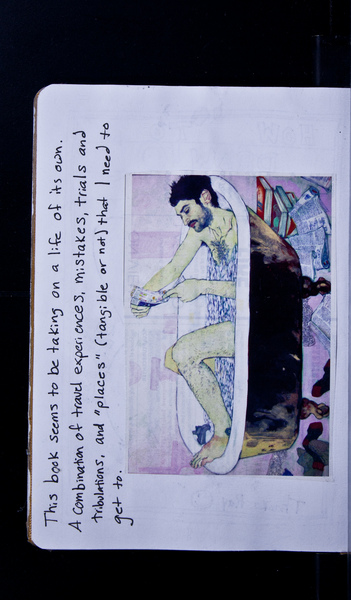 This book seems to be taking on a life of its own.
A combination of travel experiences, mistakes, trials and
tribulations, and "places" (tangible or not) that I need to
get to.